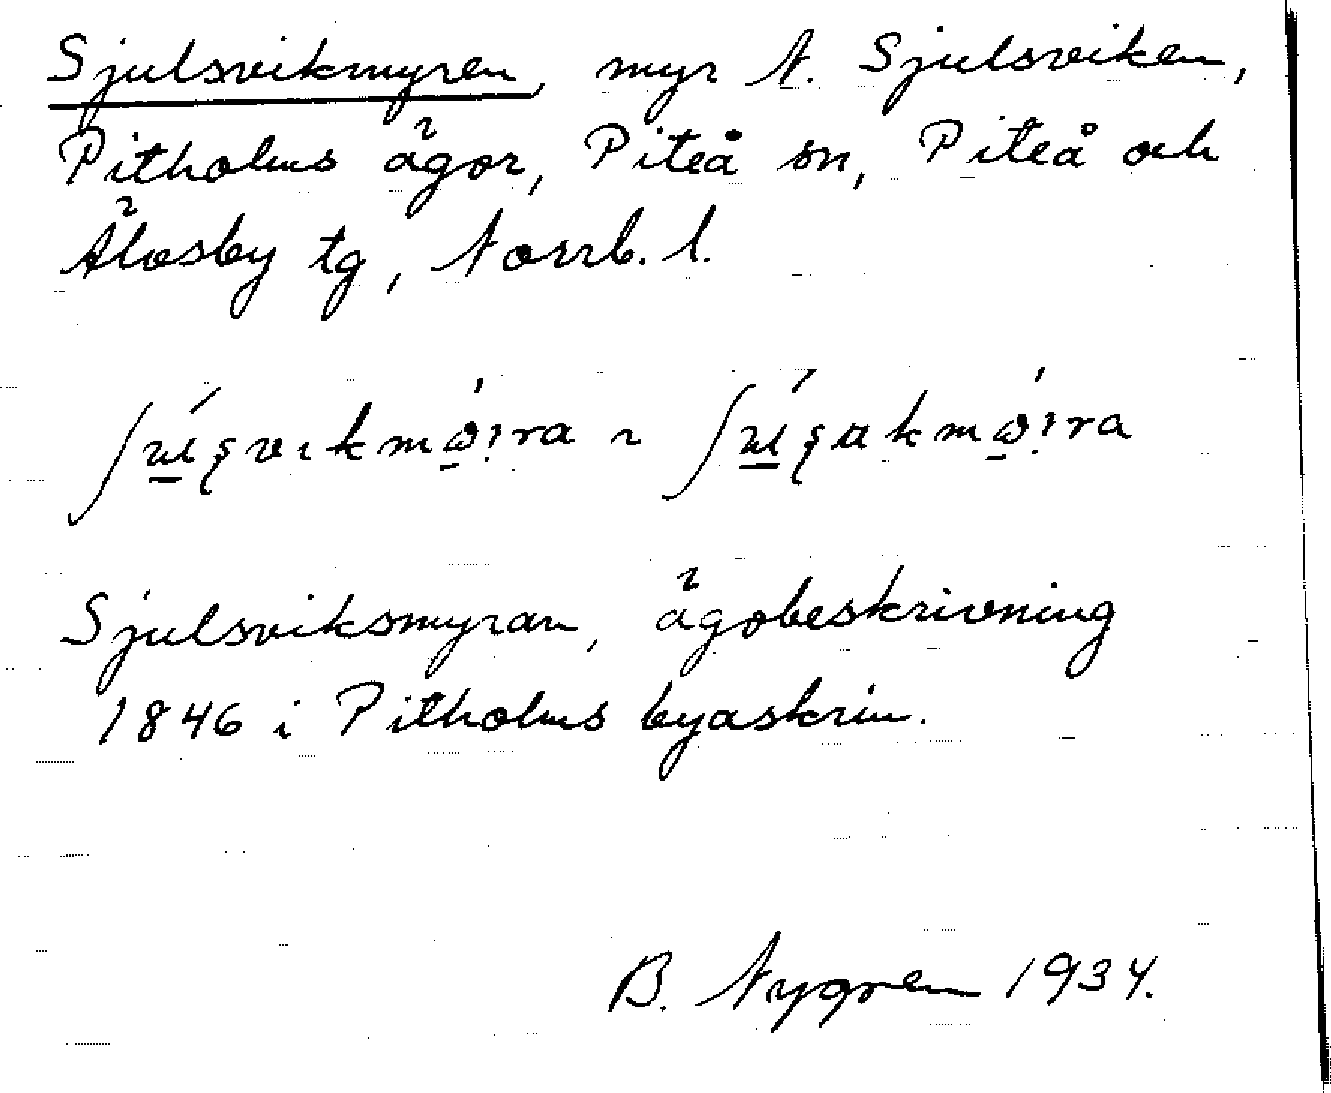 Sjulsvikmyren, myr N. Sjulsviken,
Pitholms ägor, Piteå sn, Piteå och
Älvsby tg, Norrb. l.
Sjulsviksmyran, ägobeskrivning
1846 i Pitholms byaskrin.
B. Nygren 1934.